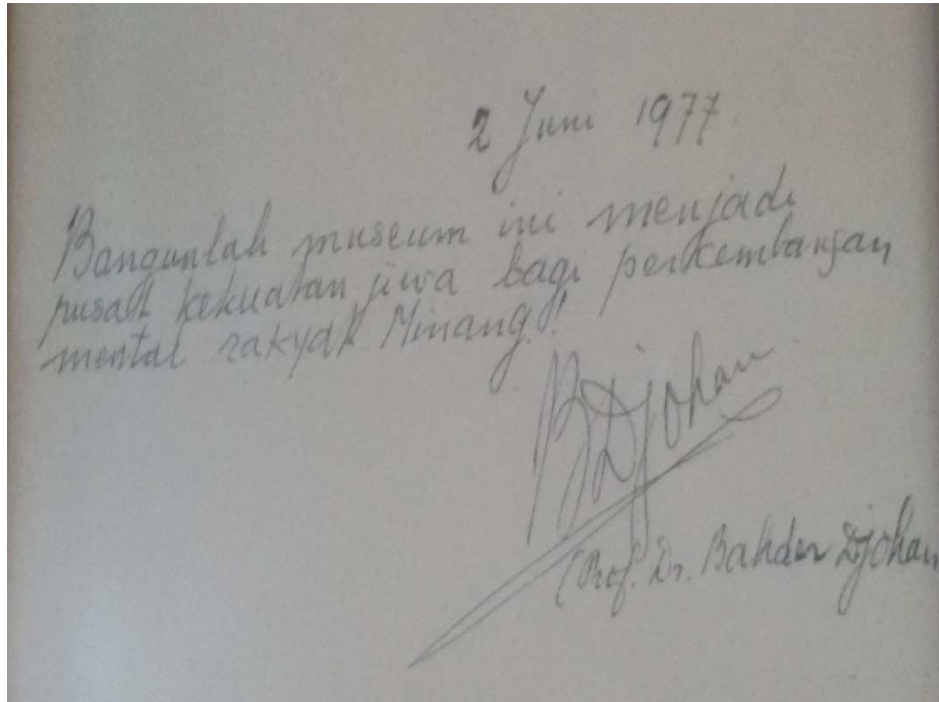 2 Juni 1977.
Bangunlah museum ini menjadi
pusat kekuatan jiwa bagi perkembangan
mental rakyat Minang!
BDjohan
(Prof. Dr. Bahder Djohan